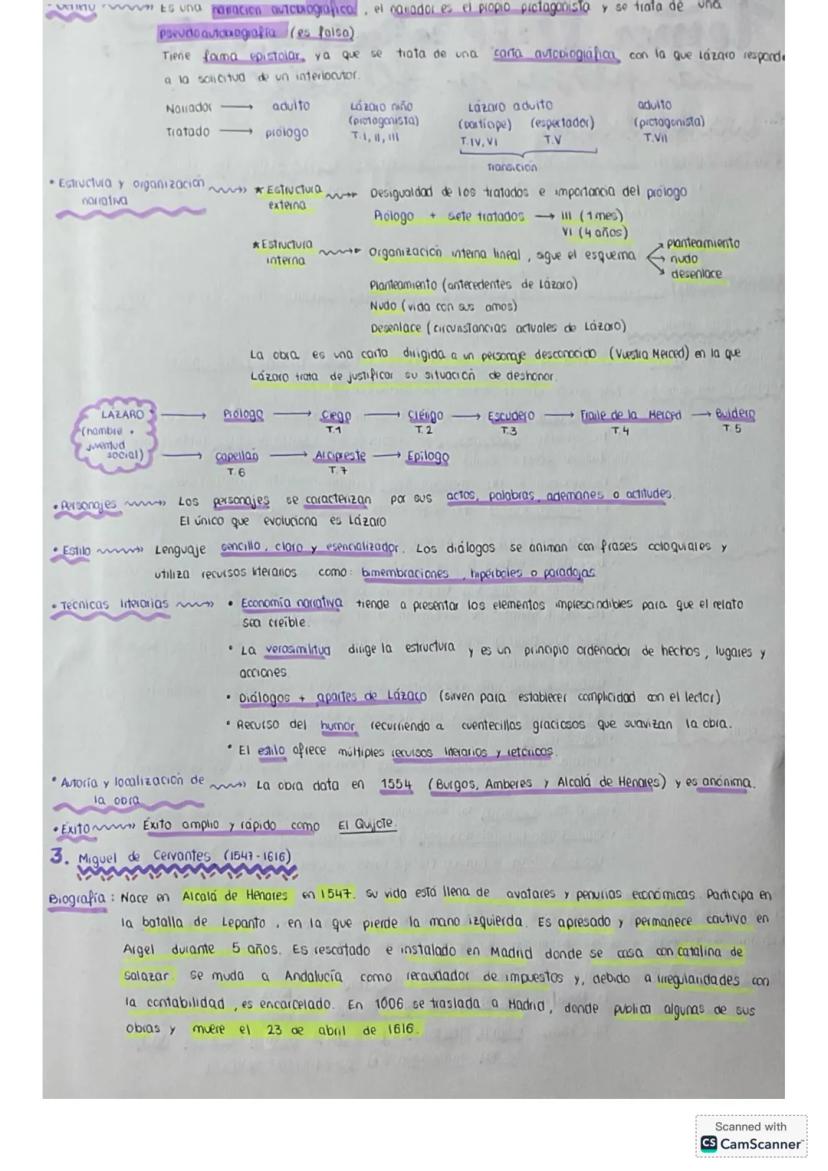 Es una narración autobiográfica, el narrador es el propio protagonista y se trata de una
pseudoautobiografía (es falsa)
Tiene forma epistolar, ya que se trata de una carta autobiográfica, con la que Lázaro responde
a la solicitud de un interlocutor.
Narrador → adulto Lázaro niño (protagonista) Lázaro adulto (partícipe) (espectador) adulto (protagonista)
Tratado → prólogo T.I, II, III T.IV, VI T.V T.VII
transición
• Estructura y organización narrativa ★ Estructura externa Desigualdad de los tratados e importancia del prólogo
Prólogo + siete tratados → III (1 mes)
VI (4 años)
★ Estructura interna Organización interna lineal, sigue el esquema planteamiento
nudo
desenlace
Planteamiento (antecedentes de Lázaro)
Nudo (vida con sus amos)
Desenlace (circunstancias actuales de Lázaro)
La obra es una carta dirigida a un personaje desconocido (Vuestra Merced) en la que
Lázaro trata de justificar su situación de deshonor.
LÁZARO (hombre + juventud social) → Prólogo → Ciego T.1 → Clérigo T.2 → Escudero T.3 → Fraile de la Merced T.4 → Buldero T.5
→ Capellán T.6 → Arcipreste T.7 → Epílogo
• Personajes Los personajes se caracterizan por sus actos, palabras, ademanes o actitudes.
El único que evoluciona es Lázaro
• Estilo Lenguaje sencillo, claro y esencializador. Los diálogos se animan con frases coloquiales y
utiliza recursos literarios como: bimembraciones, hipérboles o paradojas
• Técnicas literarias • Economía narrativa tiende a presentar los elementos imprescindibles para que el relato
sea creíble.
• La verosimilitud dirige la estructura y es un principio ordenador de hechos, lugares y
acciones
• Diálogos + apartes de Lázaro (sirven para establecer complicidad con el lector)
• Recurso del humor recurriendo a cuentecillos graciosos que suavizan la obra.
• El estilo ofrece múltiples recursos literarios y retóricos.
• Autoría y localización de la obra La obra data en 1554 (Burgos, Amberes y Alcalá de Henares) y es anónima.
• Éxito Éxito amplio y rápido como El Quijote.
3. Miguel de Cervantes (1547-1616)
Biografía: Nace en Alcalá de Henares en 1547. Su vida está llena de avatares y penurias económicas. Participa en
la batalla de Lepanto, en la que pierde la mano izquierda. Es apresado y permanece cautivo en
Argel durante 5 años. Es rescatado e instalado en Madrid donde se casa con Catalina de
Salazar. Se muda a Andalucía como recaudador de impuestos y, debido a irregularidades con
la contabilidad, es encarcelado. En 1606 se traslada a Madrid, donde publica algunas de sus
obras y muere el 23 de abril de 1616.
Scanned with
CS CamScanner